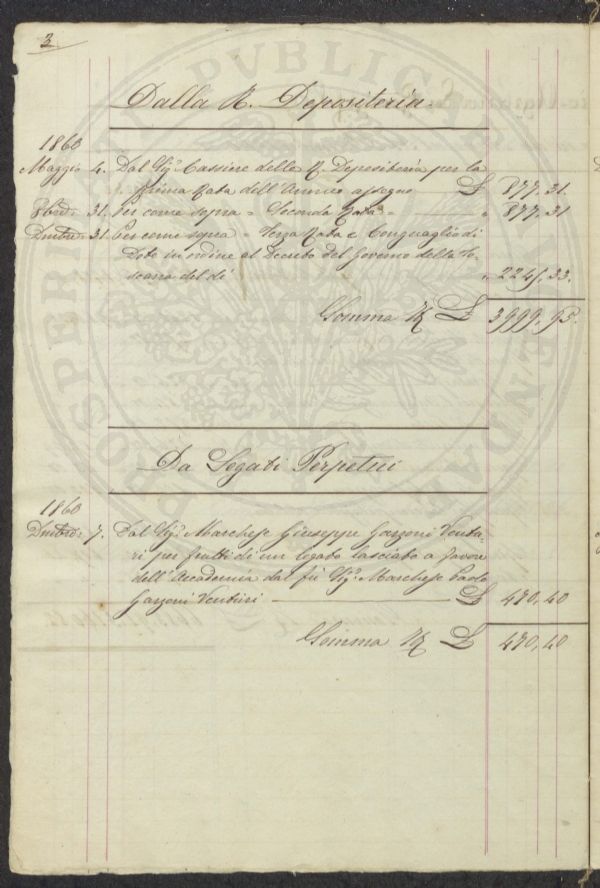 3
Dalla R. Depositeria
1860
Maggio 4. Dal Sig.r Cassiere della R. Depositeria per la
prima Rata dell'Annuo assegno £ 877. 31.
8bre 31. Per come sopra = Seconda Rata = " 877. 31
Dmbre 31. Per come sopra = Terza Rata e Conguaglio di
Dote in ordine al Decreto del Governo della To-
scana del dì " 2245. 33.
Somma £ 3999. 95.
Da Legati Perpetui
1860
Dmbre 7. Dal Sig.r Marchese Giuseppe Garzoni Ventu
ri per frutti di un legato lasciato a favore
dell'Accademia dal fù Sig.r Marchese Paolo
Garzoni Venturi £ 470, 40
Somma £ 470, 40
PROSPERITATI PUBLICAE AUGENDAE